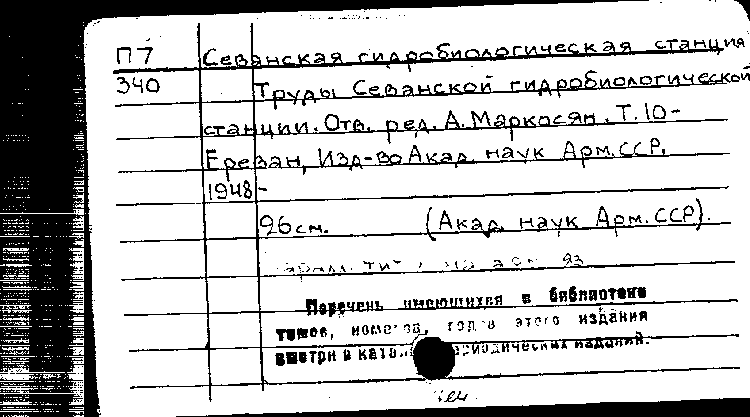 П7 Севанская гидробиологическая станция
340 Труды Севанской гидробиологической
станции. Отв. ред. А. Маркосян. Т. 10-
Ереван, Изд-во Акад. наук Арм.ССР,
1948-
26 см. (Акад. наук Арм.ССР).
Перечень имеющихся в библиотеке
томов, номеров, годов этого издания
смотри в периодических изданий.